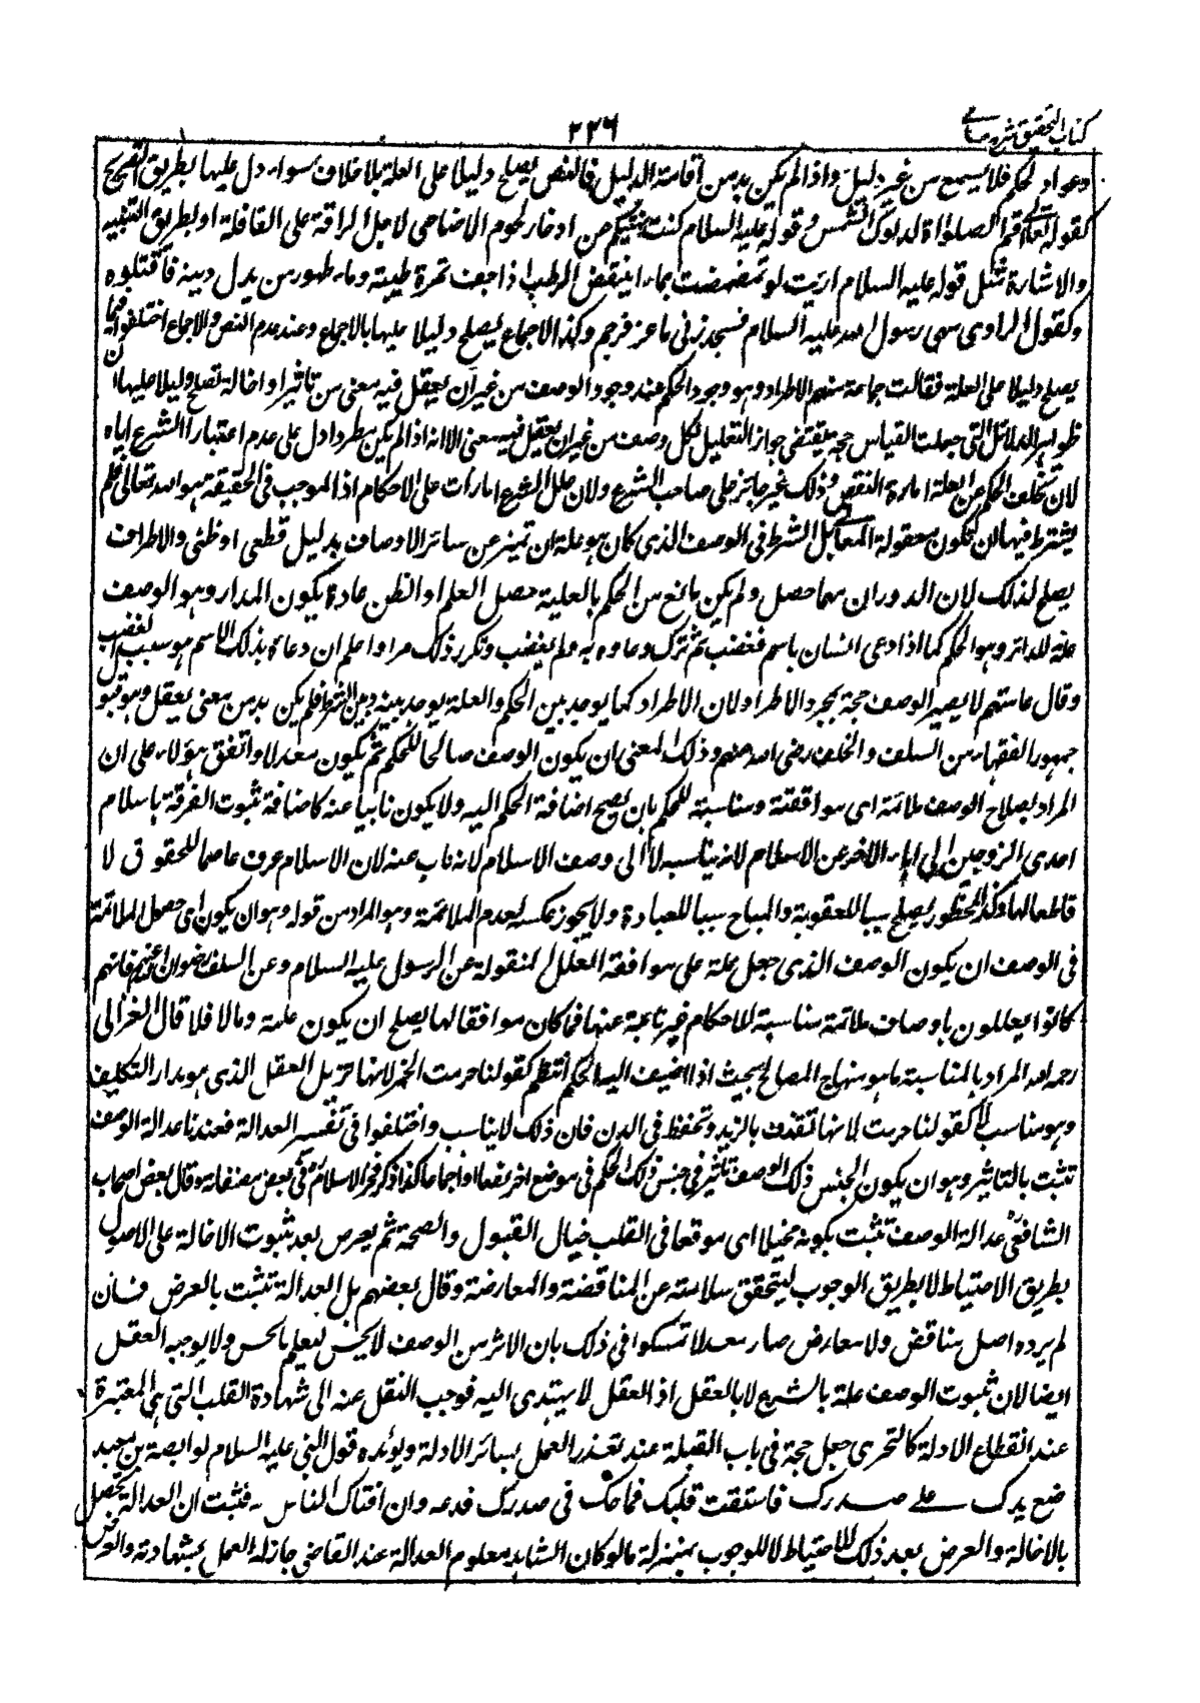 كتاب التحقيق شرح حسامى
٢٢٦
دعواه لحكم فلا يسمع من غير دليل واذا لم يكن بد من اقامة الدليل فالنص يصلح دليلا على العلة بلا خلاف سواء دل عليها بطريق التصريح
كقوله تعالى اقم الصلوة لدلوك الشمس وقوله عليه السلام كنت نهيتكم عن ادخار لحوم الاضاحى لاجل الرافة على القافلة او بطريق التنبيه
والاشارة مثل قوله عليه السلام ارايت لو تمضمضت بماء اينقض الرطب اذا جف تمرة طيبة وماء طهور من بدل دينه فاقتلوه
وكقول الراوى سهى رسول الله عليه السلام فسجد زنى ماعز فرجم وكذا الاجماع يصلح دليلا عليها بالاجماع وعند عدم النص والاجماع اختلفوا فيما
يصلح دليلا على العلة فقالت جماعة منهم الاطراد وهو وجود الحكم عند وجود الوصف من غير ان يعقل فيه معنى من تاثير او اخالة تصلح دليلا عليها لان
ظواهر الدلائل التى جعلت القياس حجة يقتضى جواز التعليل لكل وصف من غير ان يعقل فيه معنى الا انه اذا لم يكن مطردا دل على عدم اعتبار الشرع اياه
لان تخلف الحكم عن العلة امارة النقض وذلك غير جائز على صاحب الشرع ولان علل الشرع امارات على الاحكام اذ الموجب فى الحقيقة هو الله تعالى فلم
يشترط فيها ان تكون معقولة المعانى بل الشرط فى الوصف الذى كان هو علة ان تميز عن سائر الاوصاف بدليل قطعى او ظنى والاطراف
يصلح لذلك لان الدوران مهما حصل ولم يكن مانع من الحكم بالعلية حصل العلم او الظن عادة يكون المدار وهو الوصف
علة للدائر وهو الحكم كما اذا دعى انسان باسم فغضب ثم ترك دعاوه به ولم يغضب وتكرر ذلك مرارا علم ان دعاءه بذلك الاسم هو سبب الغضب
وقال عامتهم لا يصير الوصف حجة بمجرد الاطراد لان الاطراد كما يوجد بين الحكم والعلة يوجد بينه وبين الشرط فلم يكن بد من معنى يعقل وهو قول
جمهور الفقهاء من السلف والخلف رضى الله عنهم وذلك المعنى ان يكون الوصف صالحا للحكم ثم يكون معدلا واتفق هؤلاء على ان
المراد بصلاح الوصف ملائمته اى موافقته ومناسبته للحكم بان يصح اضافة الحكم اليه ولا يكون نابيا عنه كاضافة ثبوت الفرقة باسلام
احدى الزوجين الى اباء الاخر عن الاسلام لانه يناسبه لا الى وصف الاسلام لانه ناب عنه لان الاسلام عرف عاصما للحقوق لا
قاطعا لها وكذا المحظور يصلح سببا للعقوبة والمباح سببا للعبادة ولا يجوز عكسه لعدم الملائمة وهو المراد من قوله وهو ان يكون اى حصول الملائمة
فى الوصف ان يكون الوصف الذى جعل علة على موافقة العلل المنقولة عن الرسول عليه السلام وعن السلف رضوان الله عنهم فانهم
كانوا يعللون باوصاف ملائمة مناسبة للاحكام غير نابية عنها فما كان موافقا لها يصلح ان يكون علة وما لا فلا قال الغزالى
رحمه الله المراد بالمناسبة ما هو منهاج المصالح بحيث اذا اضيف اليه الحكم انتظم كقولنا حرمت الخمر لانها تزيل العقل الذى هو مدار التكليف
وهو مناسب لا كقولنا حرمت لانها تقذف بالزبد وتحفظ فى الدن فان ذلك لا يناسب واختلفوا فى تفسير العدالة فعندنا عدالة الوصف
تثبت بالتاثير وهو ان يكون لجنس ذلك الوصف تاثير فى جنس ذلك الحكم فى موضع اخر نصا او اجماعا كذا ذكر فخر الاسلام فى بعض مصنفاته وقال بعض اصحاب
الشافعى عدالة الوصف تثبت بكونه مخيلا اى موقعا فى القلب خيال القبول والصحة ثم يعرض بعد ثبوت الاخالة على الاصول
بطريق الاحتياط لا بطريق الوجوب ليتحقق سلامته عن المناقضة والمعارضة وقال بعضهم بل العدالة تثبت بالعرض فان
لم يرده اصل مناقض ولا معارض صار معدلا تمسكوا فى ذلك بان الاثر من الوصف لا يحس ليعلم بالحس ولا يوجبه العقل
ايضا لان ثبوت الوصف علة بالشرع لا بالعقل اذ العقل لا يهتدى اليه فوجب النقل عنه الى شهادة القلب التى هى المعتبرة
عند انقطاع الادلة كالتحرى جعل حجة فى باب القبلة عند تعذر العمل بسائر الادلة ويؤيده قول النبى عليه السلام لوابصة بن معبد
ضع يدك على صدرك فاستفت قلبك فما حك فى صدرك فدعه وان افتاك الناس فثبت ان العدالة تحصل
بالاخالة والعرض بعد ذلك للاحتياط لا للوجوب بمنزلة ما لو كان الشاهد معلوم العدالة عند القاضى جاز له العمل بشهادته والعرض